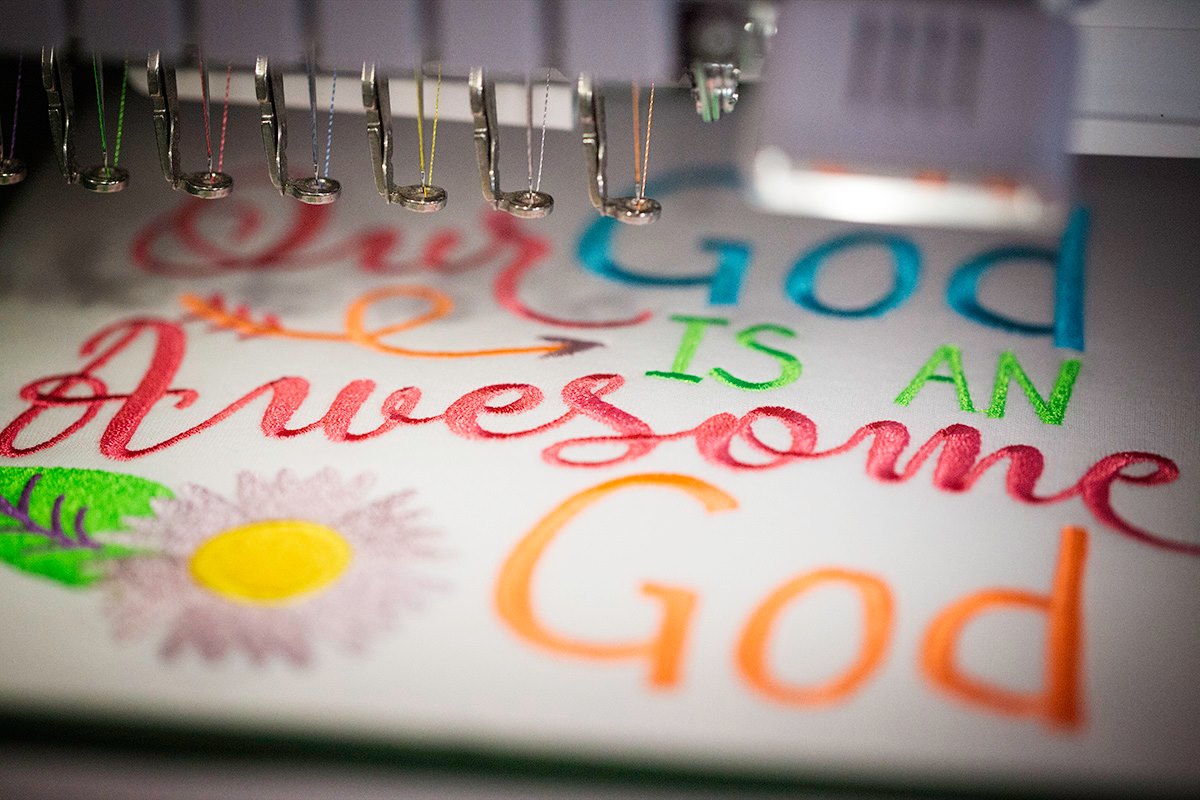 Our God
IS AN
Awesome
God